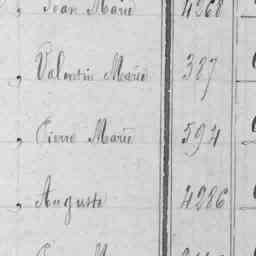 , Jean Marie 4268
, Valentin Marie 387
, Pierre Marie 594
, Auguste 4286